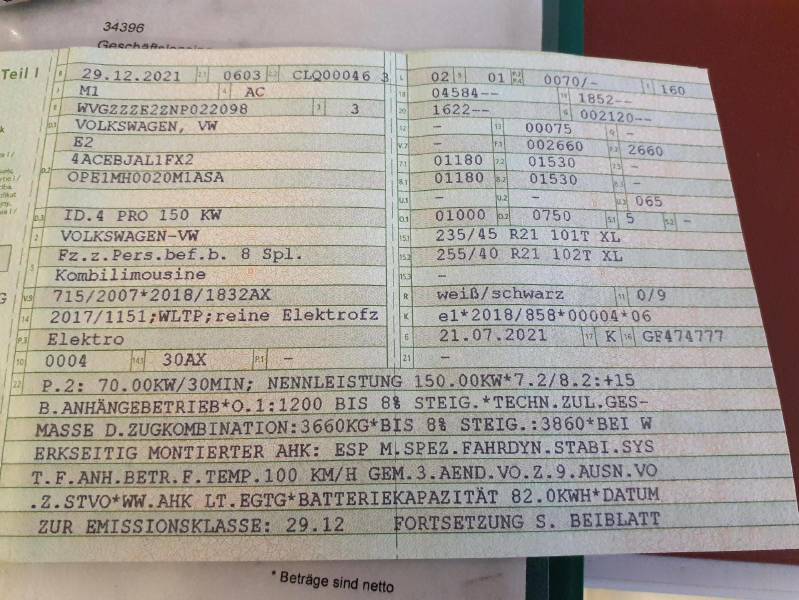 34396
Teil I
B 29.12.2021 2.1 0603 2.2 CLQ00046 3
J M1 4 AC
E WVGZZZE2ZNP022098 3 3
D.1 VOLKSWAGEN, VW
E2
D.2 4ACEBJAL1FX2
OPE1MH0020M1ASA
D.3 ID.4 PRO 150 KW
2 VOLKSWAGEN-VW
5 Fz.z.Pers.bef.b. 8 Spl.
Kombilimousine
V.9 715/2007*2018/1832AX
14 2017/1151;WLTP;reine Elektrofz
P.3 Elektro
10 0004 14.1 30AX P.1 -
L 02 9 01 P.2 P.4 0070/- T 160
18 04584-- 19 1852--
20 1622-- G 002120--
12 - 13 00075 Q -
V.7 - F.1 002660 F.2 2660
7.1 01180 7.2 01530 7.3 -
8.1 01180 8.2 01530 8.3 -
U.1 - U.2 - U.3 065
O.1 01000 O.2 0750 S.1 5 S.2 -
15.1 235/45 R21 101T XL
15.2 255/40 R21 102T XL
15.3 -
R weiß/schwarz 11 0/9
K e1*2018/858*00004*06
6 21.07.2021 17 K 16 GF474777
21 -
22 P.2: 70.00KW/30MIN; NENNLEISTUNG 150.00KW*7.2/8.2:+15
B.ANHÄNGEBETRIEB*O.1:1200 BIS 8% STEIG.*TECHN.ZUL.GES-
MASSE D.ZUGKOMBINATION:3660KG*BIS 8% STEIG.:3860*BEI W
ERKSEITIG MONTIERTER AHK: ESP M.SPEZ.FAHRDYN.STABI.SYS
T.F.ANH.BETR.F.TEMP.100 KM/H GEM.3.AEND.VO.Z.9.AUSN.VO
.Z.STVO*WW.AHK LT.EGTG*BATTERIEKAPAZITÄT 82.0KWH*DATUM
ZUR EMISSIONSKLASSE: 29.12 FORTSETZUNG S. BEIBLATT
* Beträge sind netto